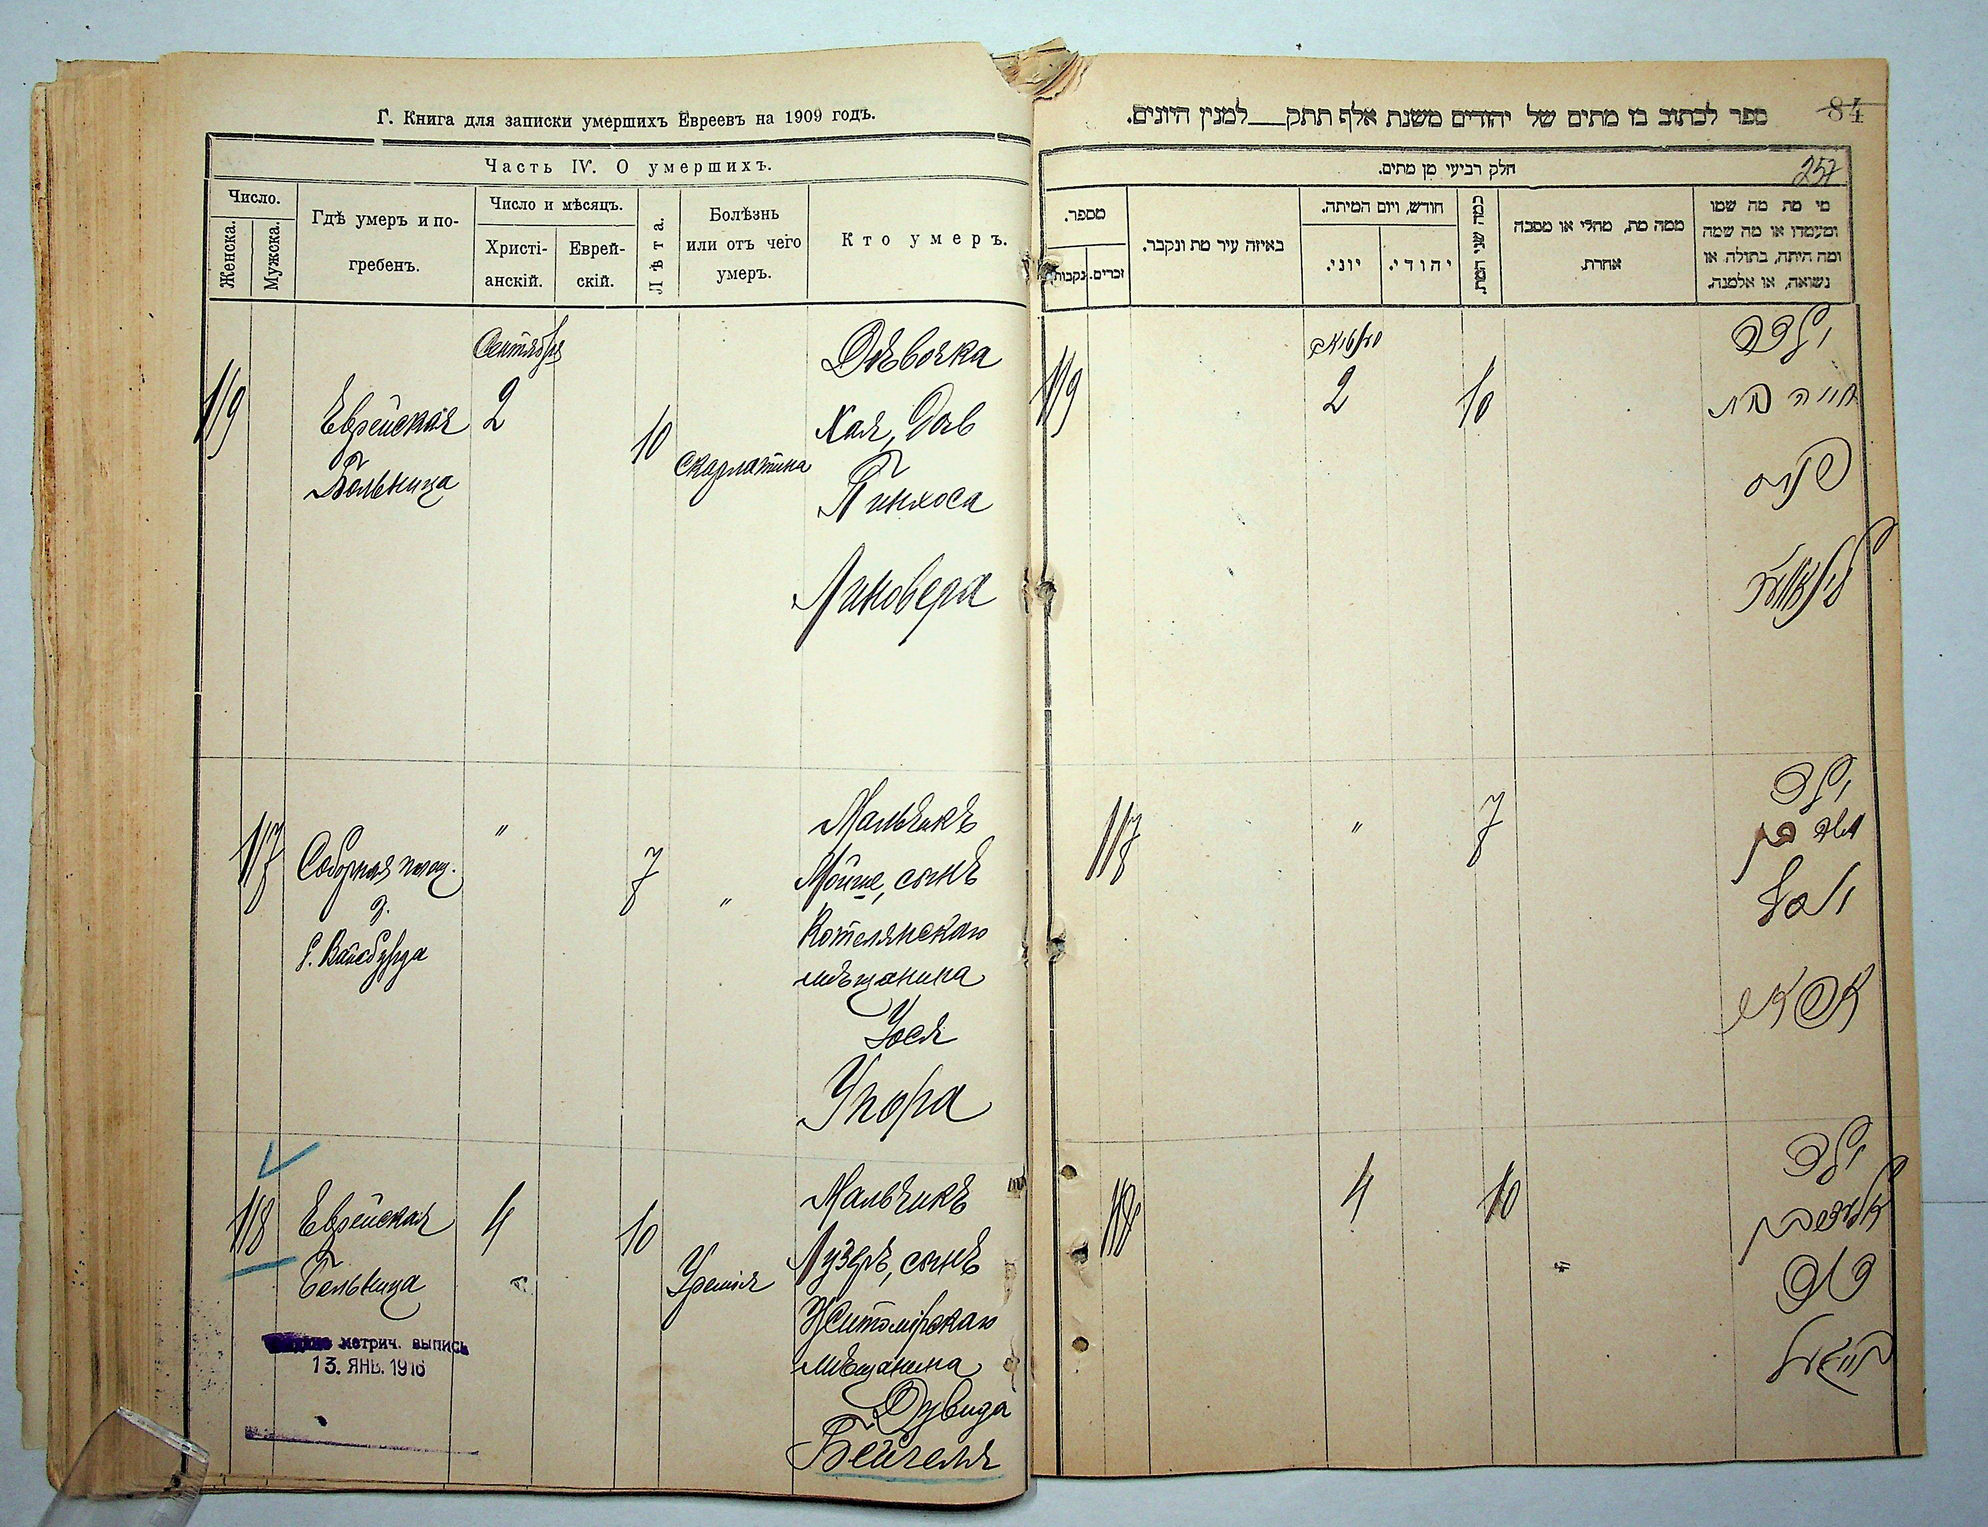 Г. Книга для записки умершихъ Евреевъ на 1909 годъ.
Часть IV. О умершихъ.
Число.
Женска.
Мужска.
Гдѣ умеръ и по-
гребенъ.
Число и мѣсяцъ.
Христі-
анскій.
Еврей-
скій.
Лѣта.
Болѣзнь
или отъ чего
умеръ.
Кто умеръ.
119
Еврейская
Больница
Сентября
2
10
скарлатина
Дѣвочка
Хая, доч
Пинхоса
Линовера
117
Соборная площ.
д.
Вайсбурда
"
7
"
Мальчикъ
Мойше, сынъ
Котелянскаго
мѣщанина
Иося
Упора
118
Еврейская
Больница
4
10
Уремія
Мальчикъ
Лузеръ, сынъ
Житомірскаго
мѣщанина
Дувида
Бейгеля
метрич. выпись
13. ЯНВ. 1916
ספר לכתוב בו מתים של יהודים משנת אלף תתק למנין היונים.
84
257
חלק רביעי מן מתים.
מספר.
נקבות.
זכרים.
באיזה עיר מת ונקבר.
חודש, ויום המיתה.
יוני.
יהודי.
כמה שני המת.
ממה מת, מחלי או מסבה
אחרת.
מי מת מה שמו
ומעמדו או מה שמה
ומה היתה, בתולה או
נשואה, או אלמנה.
119
2
10
ילדה
חיה בת
פנחס
117
"
7
ילד
משה בן
118
4
10
ילד
אליעזר בן
דוד
בייגעל